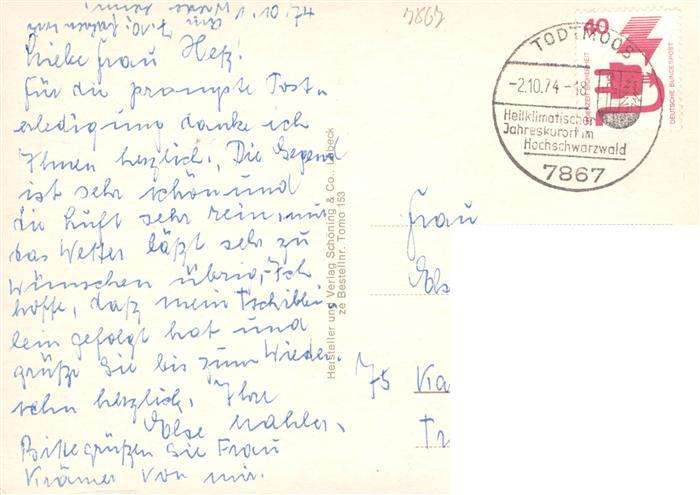 1.10.74
7867
Liebe Frau Heß!
Für die prompte Post-
erledigung danke ich
Ihnen herzlich. Die Gegend
ist sehr schön und
die Luft sehr rein, nur
das Wetter läßt sehr zu
Wünschen übrig. Ich
hoffe, daß mein
lein gefolgt hat und
grüße Sie bis zum Wieder-
sehn herzlich. Ihre
Else
Bitte grüßen Sie Frau
Krämer von mir.
Hersteller und Verlag Schöning & Co., Lübeck
Bestellnr. Tomo 153
40
DEUTSCHE BUNDESPOST
TODTMOOS
-2.10.74-18
Heilklimatischer
Jahreskurort im
Hochschwarzwald
7867
Frau
Else
75 Ka